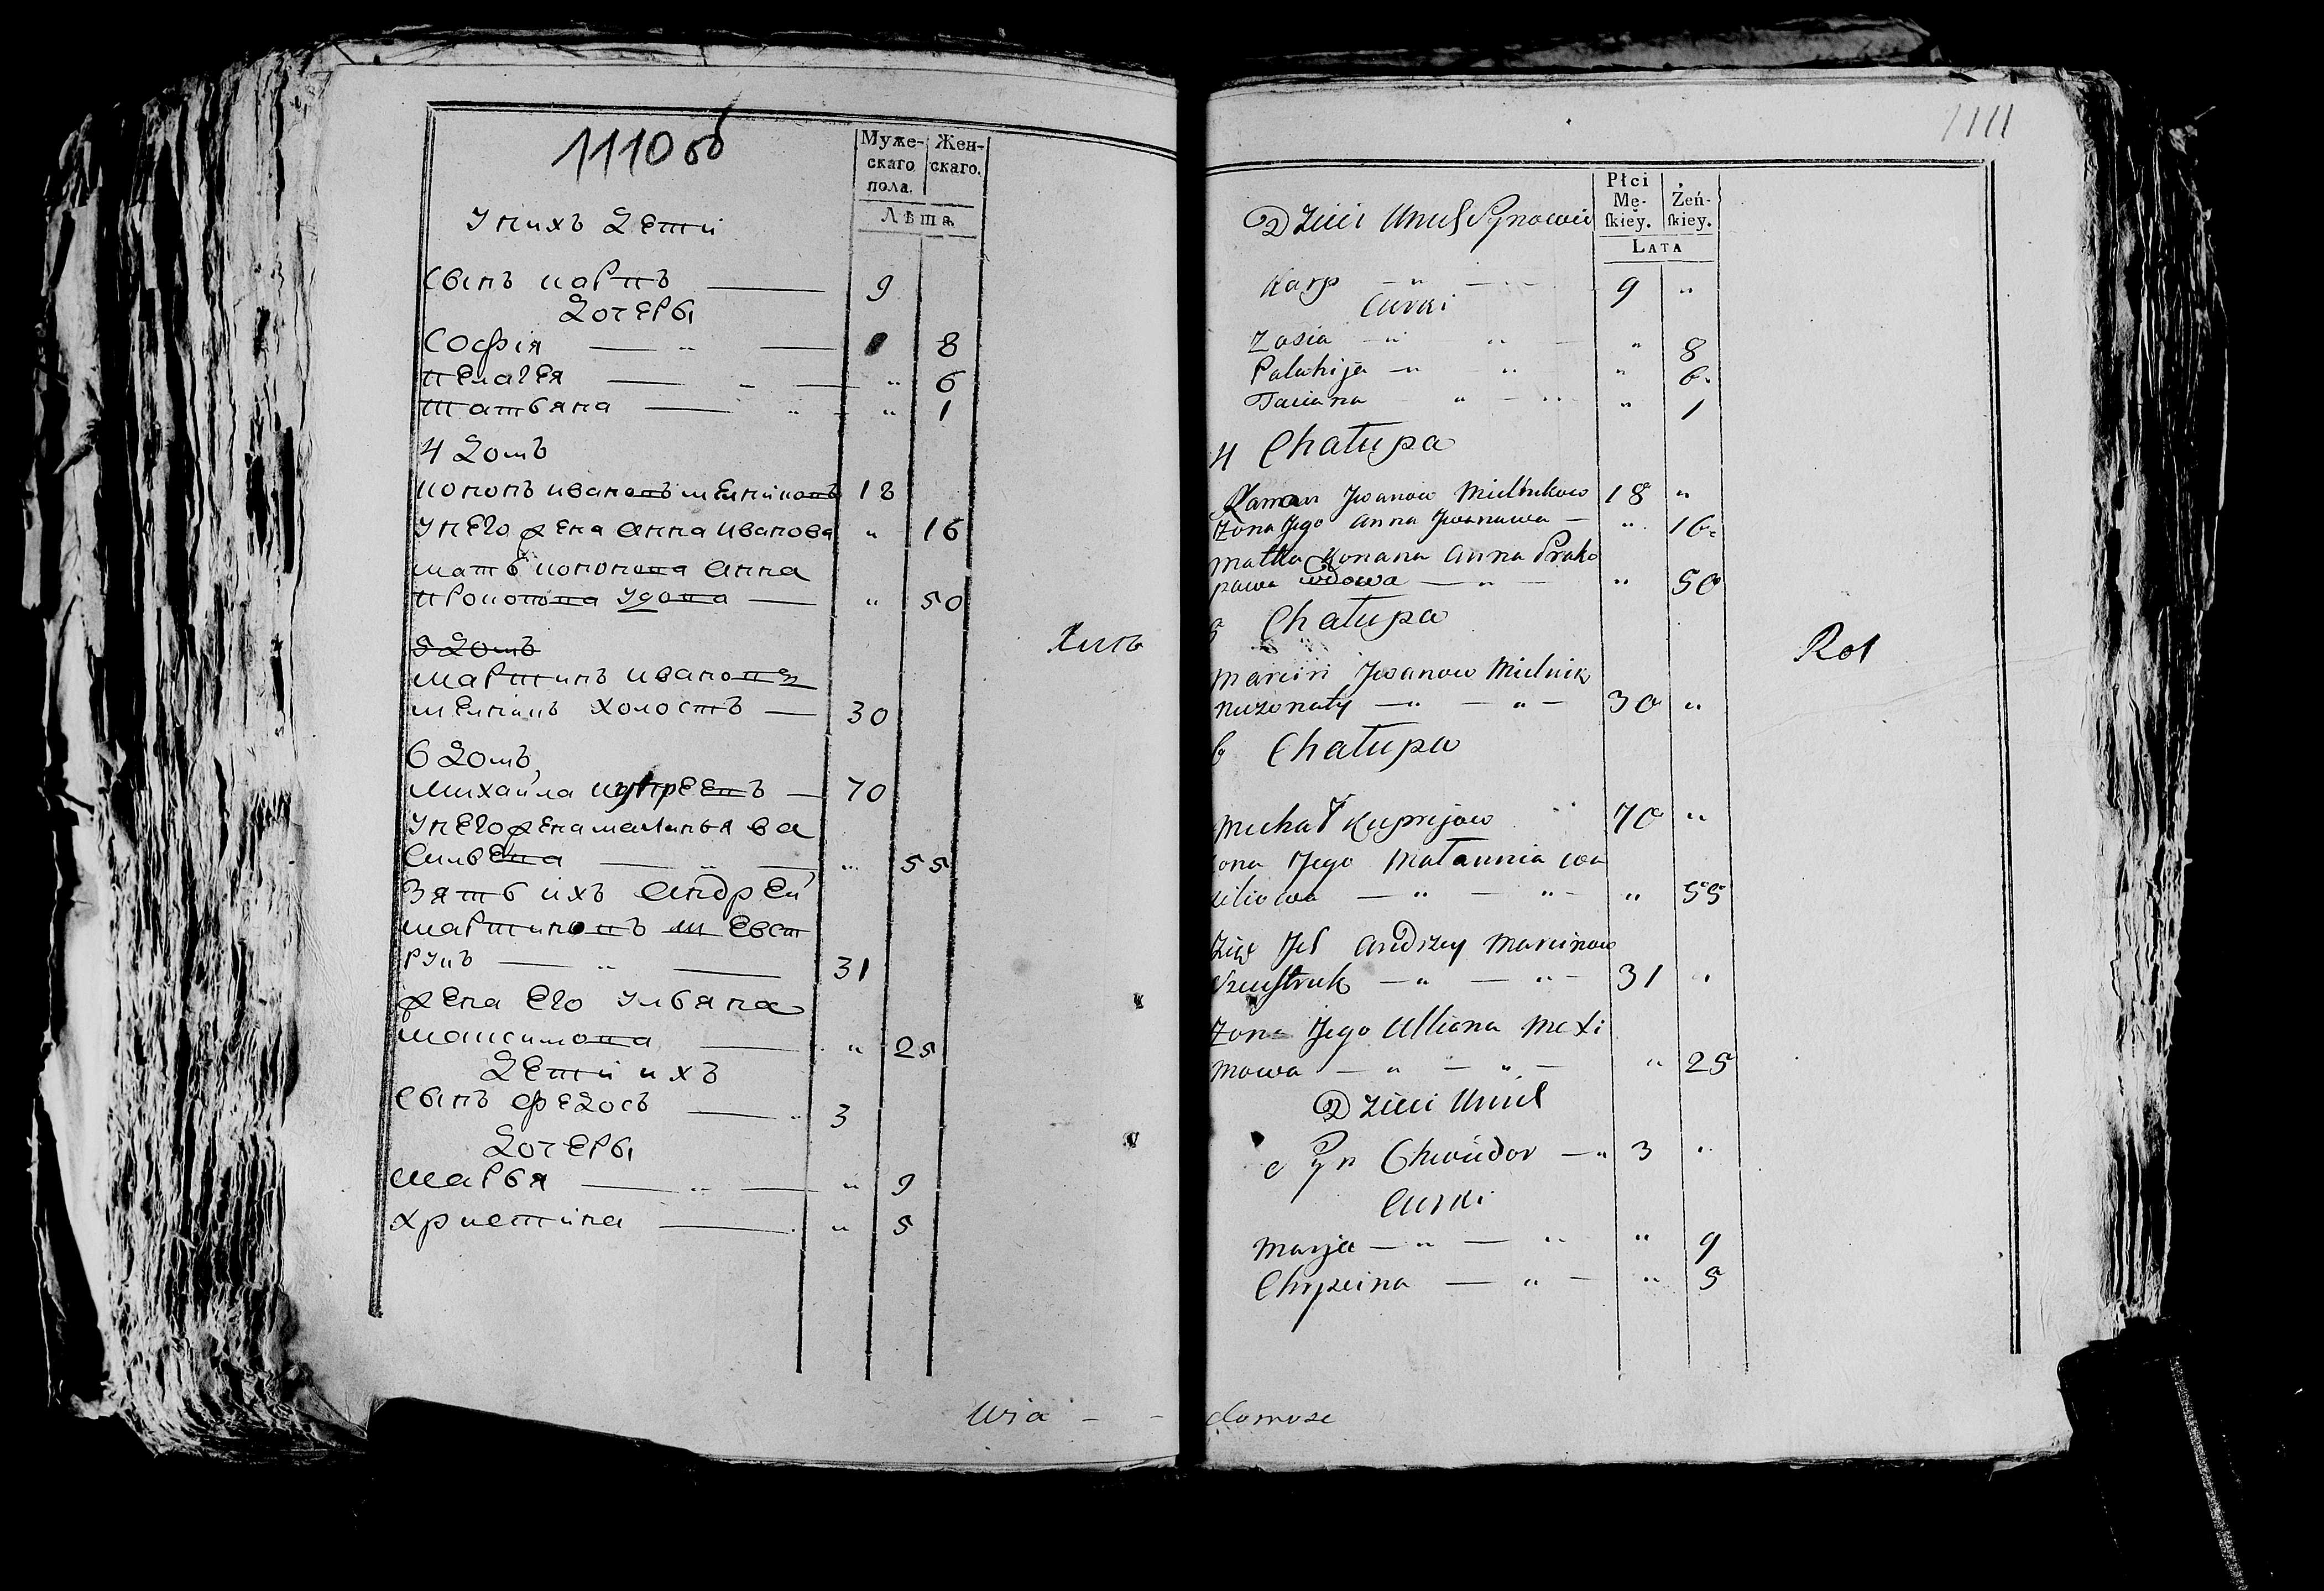 1110 об
Муже-
скаго
пола.
Жен-
скаго.
Лѣта
У нихъ Дети
Сынъ карпъ — 9
Дотерьі
Софія — „ — 8
пелагея — „ — „ 6
татьяна — „ — „ 1
4 Домъ
кононъ ивановъ мелниковъ 18
У него жена анна иванова „ 16
мать кононова анна
прокопова удова — „ 50
5 Домъ
мартинъ ивановъ
мелникъ холостъ — 30
6 Домъ
михайла купреевъ — 70
У него жена маланья ва
сильева — „ — „ 55
Зять ихъ андрей
мартиновъ шевст
рукъ — „ — 31
жена его ульяна
максимова — „ 25
Дети ихъ
сынъ федосъ — „ 3
Дотерьі
марья — „ — „ 9
христина — „ 5
Wia - -
1111
Płci
Mę-
skiey.
Żeń-
skiey.
LATA
Dzieci Unich Synowie
Karp — „ — 9 „
Curki
Zosia — „ „ — „ 8
Palahija — „ „ „ 6
Taciana „ — „ „ 1
4 Chałupa
Konan Jwanow Mielnikow 18 „
Żona Jego Anna Jwanowa — „ 16
Matka Konana Anna Prako
powa wdowa — „ — „ 50
5 Chałupa
Marcin Jwanow Mielnik
nieżonaty — „ — „ — 30 „
6 Chałupa
Michał Kuprejow „ 70 „
żona Jego Małannia wa
siliowa — „ — „ — „ 55
Zięć Ich Andrzey Marcinow
Szeustruk — „ — „ — 31 „
Żona Jego Ulliana Mexi
mowa — „ — „ — „ 25
Dzieci Unich
Syn Chwiedor — „ 3 „
Curki
Marja — „ — „ „ 9
Chryscina — „ — „ 5
domosc